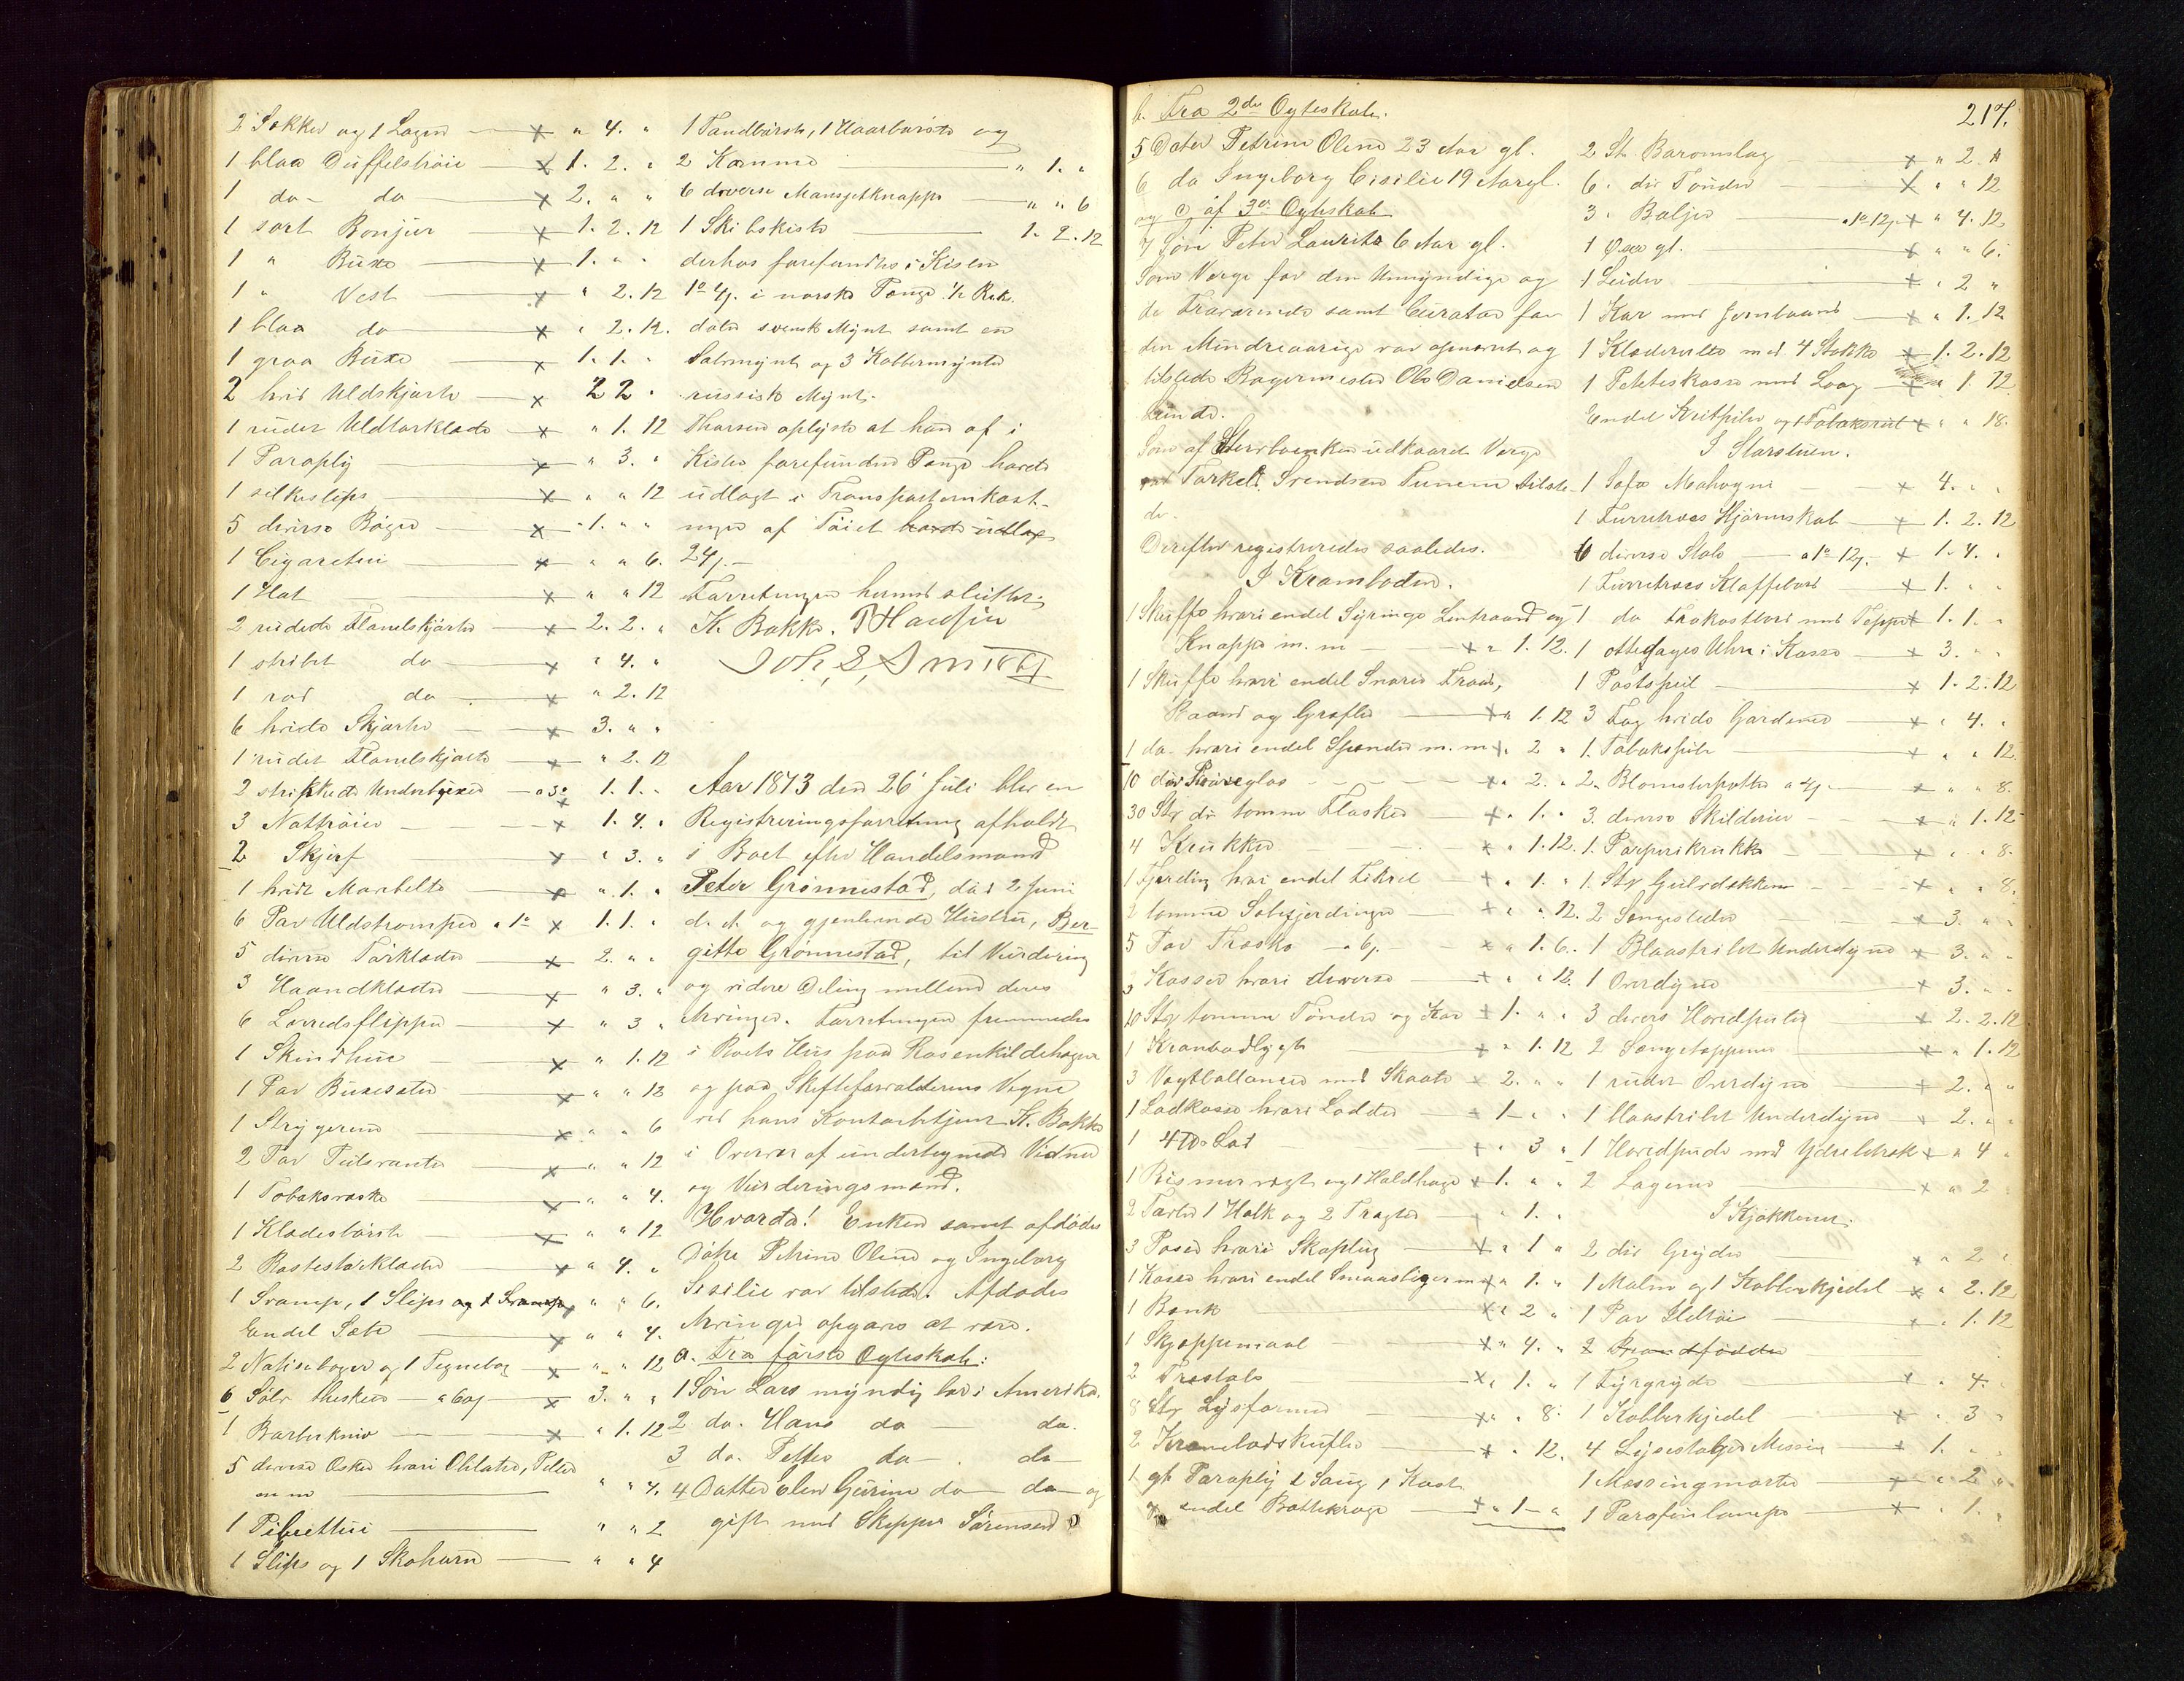 2 Sækker og 1 Lagen × " 4. "
1 blaa Duffelstrøie × 1. 2. "
1 do do × 2. " "
1 sort Bonjur × 1. 2. 12
1 " Buxe × 1. " "
1 " Vest × " 2. 12
1 blaa do × " 2. 12.
1 graa Buxe × 1. 1. "
2 hvid Uldskjorte × 2 2 "
1 rudet Uldtørklæde × " 1. 12
1 Paraply × " 3. "
1 silkeslips × " " 12
5 diverse Bøger × 1. " "
1 Cigaretui × " " 6.
1 Hat × " " 12
2 rudede Flanelskjorte × 2. 2. "
1 stribet do × " 4. "
1 rød do × " 2. 12
6 hvide Skjorter × 3. " "
1 rudet Flanelskjorte × " 2. 12
2 strikkede Underbuxer a 3o × 1. 1. "
3 Nattrøier × 1. 4. "
2 Skjerf × " 3. "
1 hvidt × " 1. "
6 Par Uldstrømper a 1o × 1. 1. "
5 diverse Tørklæder × 2. " "
3 Haandklæder × " 3. "
6 Lærredsflipper × " 3 "
1 Skindhue × " 1. 12
1 Par Buxeseler × " " 12
1 × " " 6
2 Par Pulsvanter × " " 12
1 Tobakspaske × " " 4.
1 Klædesbørste × " " 12
2 × " 4. "
1 Svamp, 1 Slips og 1 Svamp " " 6.
Endel Sæbe × " " 4.
2 Notisebøger og 1 Tegnebog × " " 12
6 Sølv Theskeer a 60 × 3. " "
1 Barberkniv × " 1. 12
5 diverse Æsker hvori Oblater, Piller
m m " " 4.
1 Pibeettui " " 2
1 Slips og 1 Skohorn " " 4
1 Tandbørste, 1 Haarbørste og
2 Kamme " 1. "
6 diverse Mansjetknapper " " 6
1 Skibskiste 1. 2. 12
derhos forefandtes i Kisten
1o 4 i norske Penge 1/2 Rik.
daler svensk Mynt samt en
Sølvmynt og 3 Kobbermynter
russisk Mynt.
oplyste at han af i
Kisten forefundne Penge havde
udlagt i Transportomkost-
ninger af Tøiet havde udlagt
24 .-
Forretningen hermed sluttet.
K. Bakke. T Hansen
Joh. S. Smith
Aar 1873 den 26 Juli blev en
Registreringsforretning afholdt
i Boet efter Handelsmand
Peter Grønnestad, død 2 Juni
d. A. og gjenlevende Hustru, Ber-
gitte Grønnestad, til Vurdering
og videre Deling mellem deres
Arvinger. Forretningen fremmedes
i Boets Hus paa Rosenkildehagen
og paa Skifteforvalterens Vegne
ved hans Kontorbetjent K. Bakke
i Overvær af undertegnede Vidner
og Vurderingsmænd.
Hvorda! Enken samt afdødes
Døtre Petrine Oline og Ingeborg
Sisilie var tilstede. Afdødes
Arvinger opgaves at være.
a. Fra første Ægteskab:
1 Søn Lars myndig bor i Amerika.
2 do. Hans do do.
3 do. Petter do do
4 Datter Elen Gurine do do og
gift med Skipper Sørensen
217.
b. Fra 2det Ægteskab.
5 Dater Petrine Oline 23 Aar gl.
6 do Ingeborg Cisilie 19 Aar gl.
og c, af 3die Ægteskab
7 Søn Peter Laurits 6 Aar gl.
Som Verge for den Umyndige og
de Fraværende samt Curator for
den Mindreaarige var opnævnt og
tilstede Bagermester Ole Danielsen
Lunde.
Som af Stervboenken udkaaret Verge
var Torkel Svendsen Tunem tilste-
de.
Derefter registreredes saaledes.
I Kramboden.
1 Skuffe hvori endel Syringe Lintraad og
Knappe m. m × " 1. 12.
1 Skuffe hvori endel Snører Traad,
Baand og Grafler × " 1. 12
1 do hvori endel Spender m. m × " 2 "
10 div × " 2. "
30 Stk div tomme Flasker × " 1. "
4 Krukker × " 1. 12.
1 Fjerding hvori endel × " 1. "
2 tomme Sæbefjerdinger × " " 12.
5 Par Træsko a 6 × " 1. 6.
3 Kasser hvori diverse × " " 12.
10 Stk tomme Tønder og Kar × 1. " "
1 Kranbodlygte × " 1. 12
3 Vægtballancer med Skaale × 2. " "
1 Lodkasse hvori Lodder × 1 " "
1 4 Lod × " 3 "
1 Bismervægt og 1 Haldhage × 1. " "
2 1 Halk og 2 Tragter × " 1. "
3 Poser hvori × " 1 "
1 Kasse hvori endel × " 1. "
1 Bænk × " 2 "
1 Skjæppemaal × " 4. "
2 Træstole × " 1. "
8 Stk Lysformer × " " 8.
2 Krambodskufler × " " 12.
1 gl Paraply 1 Saug 1 Kost
og endel Bøttekroge × " 1 "
2 St. × " 2. "
6 div Tønder × " " 12
3 " Baljer a 1o 12 × " 4. 12
1 Øxe gl. × " " 6.
1 × " 2 "
1 Kar med Jernbaand × " 1. 12
1 Klæderulle med 4 Stokke × 1. 2. 12
1 Poteteskasse med Laag × " 1. 12
Endel Kritpiber og 1 × " " 18.
I Storstuen.
1 Sofa Mahogni × 4. " "
1 Furretræes Hjørneskab × 1. 2. 12
6 diverse Stole a 1o 12 × 1. 4. "
1 Furretræes Klaffebord × 1. " "
1 do Frokostbord med Teppe × 1. 1. "
1 ottedages Uhr i Kasse × 3. " "
1 × 1. 2. 12
3 Fag hvide Gardiner × " 4. "
1 Tobakspibe × " " 12.
2 Blomsterpotter a 4 × " " 8.
3 diverse Skilderier × " 1. 12
1 Papirkrukke × " " 8.
1 Stk Gulvdækken × " " 8.
2 Sengesteder × 3. " "
1 Blaastribet Underdyne × 3. " "
1 Overdyne × 3. " "
3 divers Hovedputer × 2. 2. 12.
2 Sengetepper × " 1. 12
1 rudet Overdyne × 2. " "
1 blaastribet Underdyne × 2. " "
1 Hovedpude med Ydrebetræk × " 4 "
2 Lagener × " 2 "
I Kjøkkenet.
2 div Gryder × " 2 "
1 Malm og 1 Kobberkjedel × " 2. 12
1 Par Ildtøi × " 1. 12
2 Brandfødder
1 Fyrgryde × " 4. "
1 Kobberkjedel × " 3 "
4 Lysestager Messing × 1. " "
1 Messingmorter × " 2 "
1 Parafinlampe × " 1. "